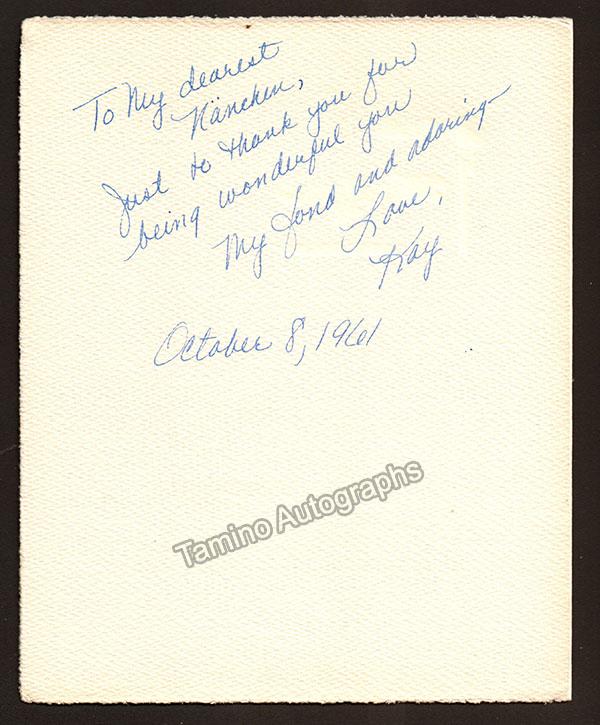 To My dearest
Nänchen,
Just to thank you for
being wonderful you
My fond and adoring
Love,
Kay
October 8, 1961
Tamino Autographs